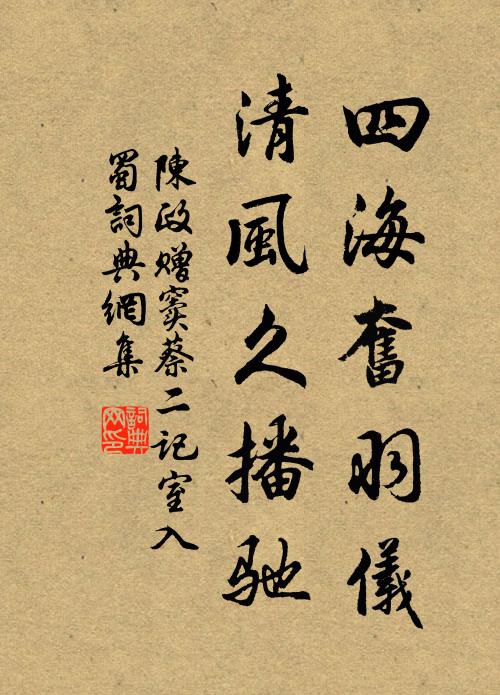 四海奮羽儀
清風久播馳
陳政贈竇蔡二記室入
蜀詞典網集
詞典
网印